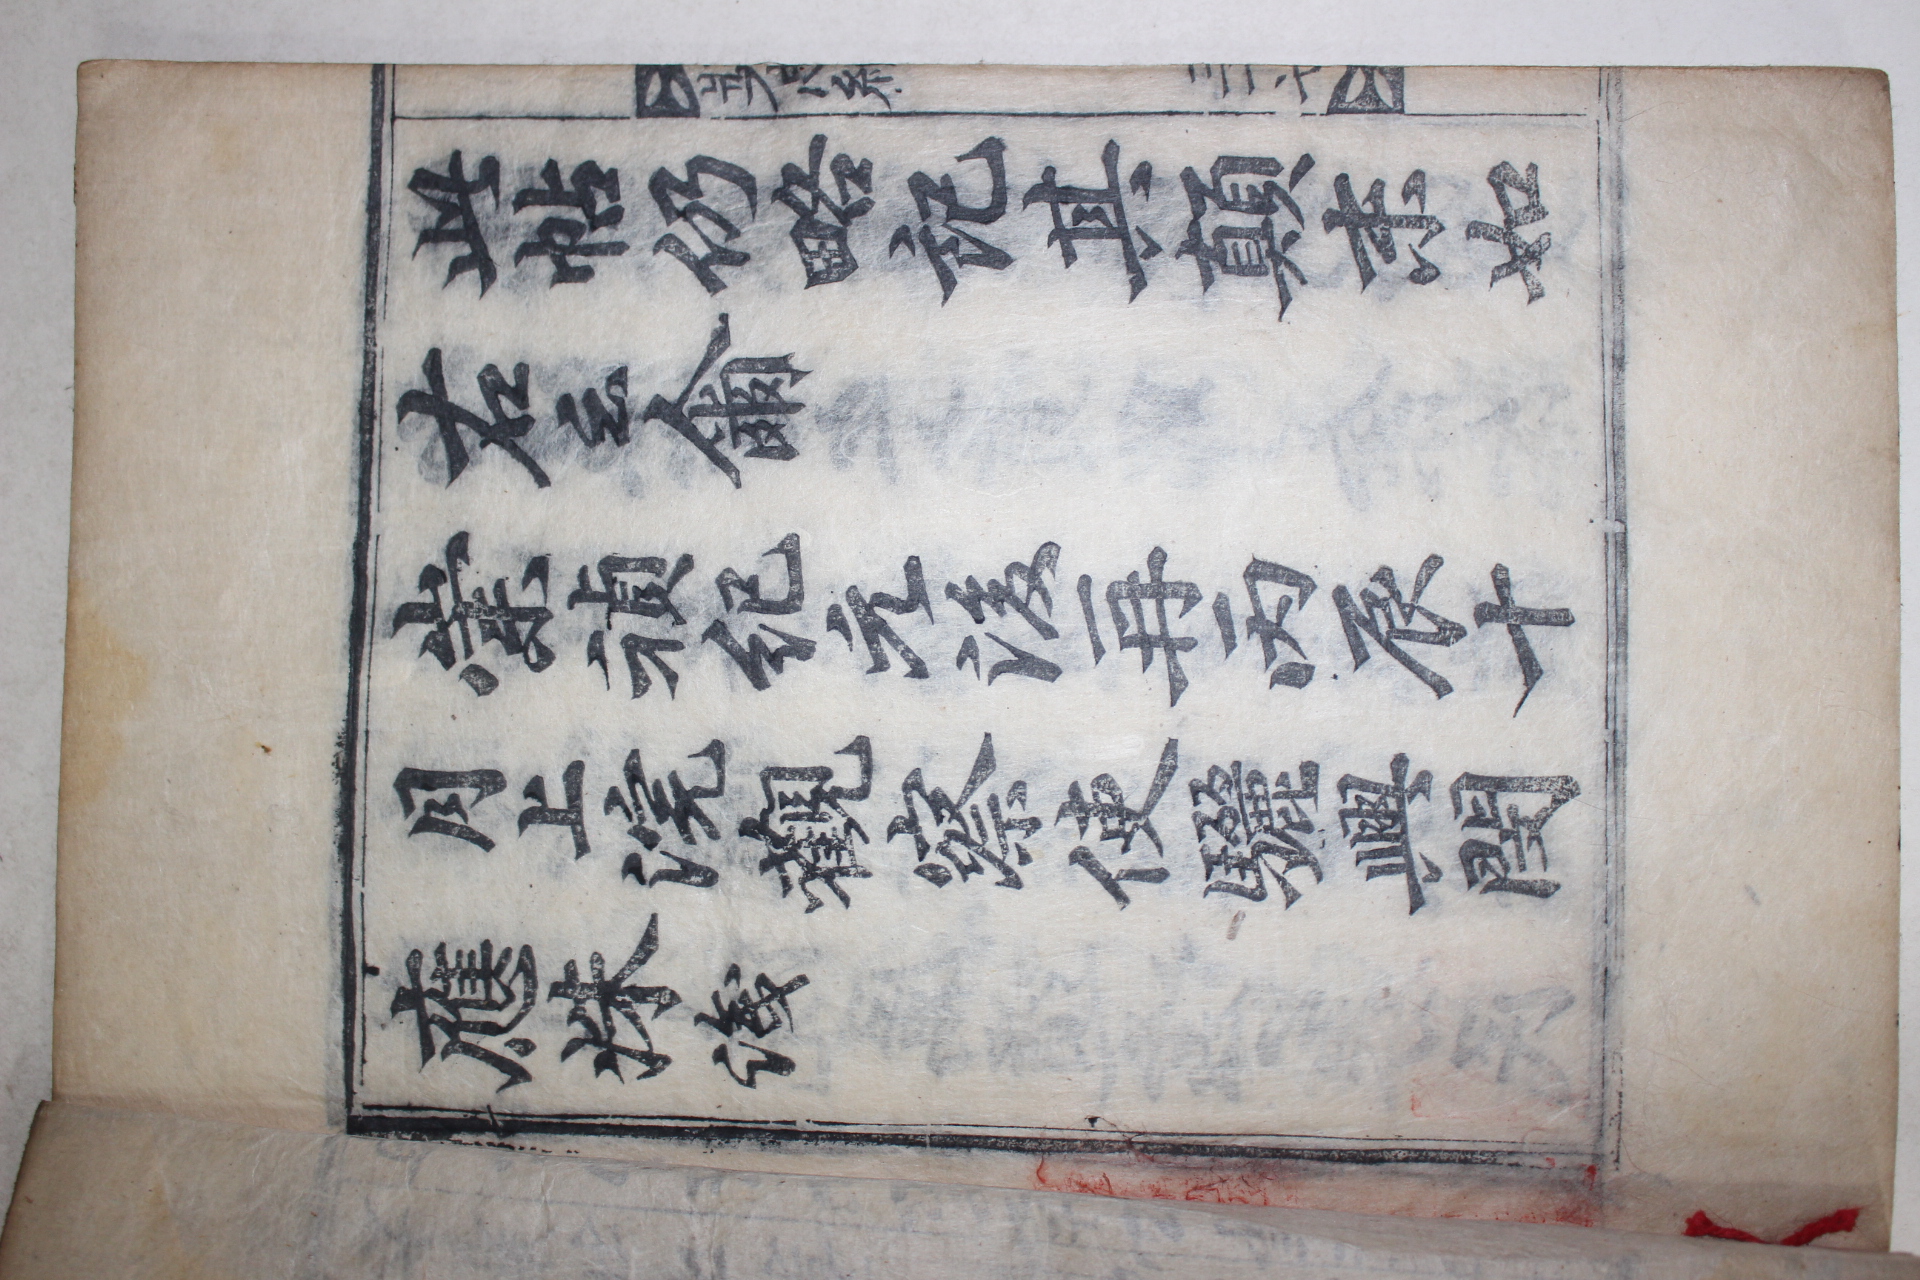 此帖仍略記其顛末如
右云爾
崇禎紀元後再丙辰十
月上浣觀察使驪興閔
應洙識
三十七